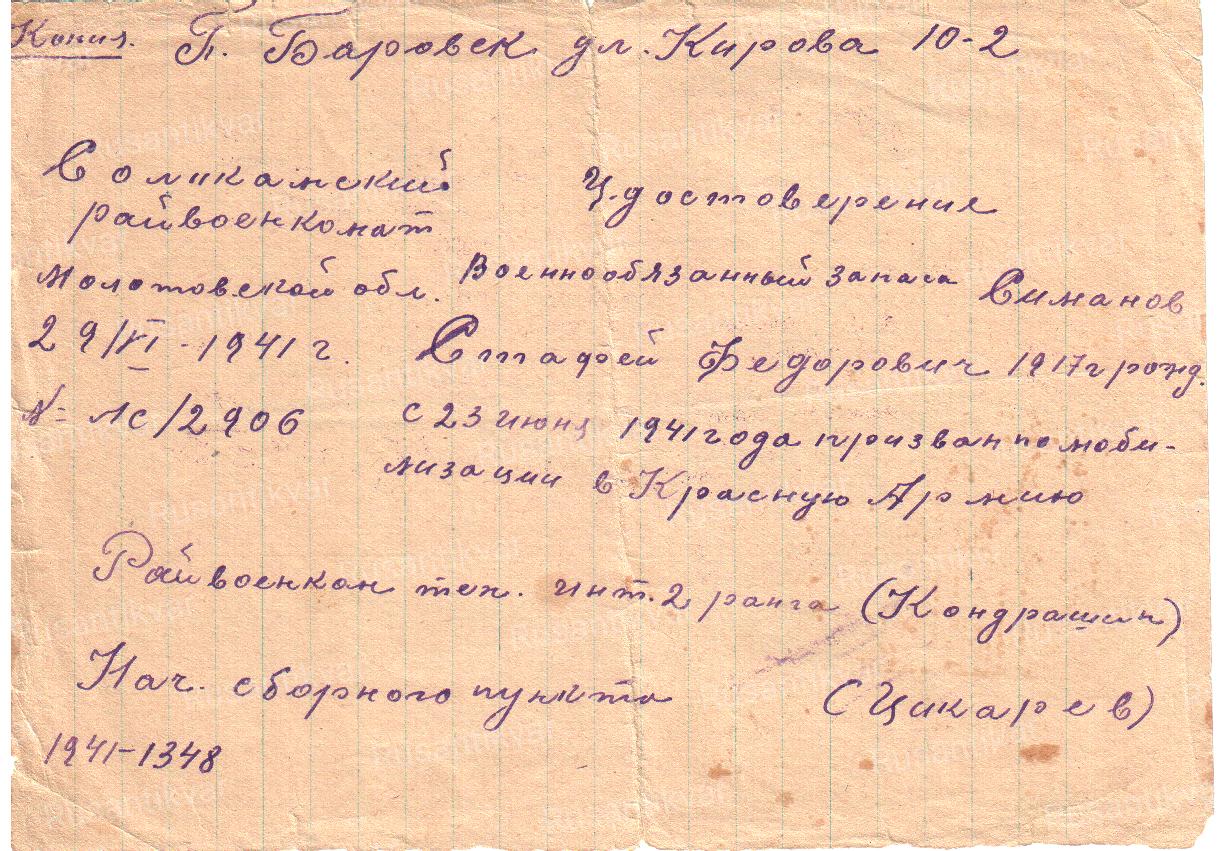 Копия.
П. Баровск ул. Кирова 10-2
Соликамский
райвоенкомат
Молотовской обл.
29/VI-1941 г.
№ ЛС/2906
Удостоверение
Военнообязанный запаса Симанов
Стафей Федорович 1917 г рожд.
с 23 июня 1941 года призван по моби-
лизации в Красную Армию
Райвоенком тех. инт. 2 ранга (Кондрашин)
Нач. сборного пункта (Цикарев)
1941-1348
Rusantikvar